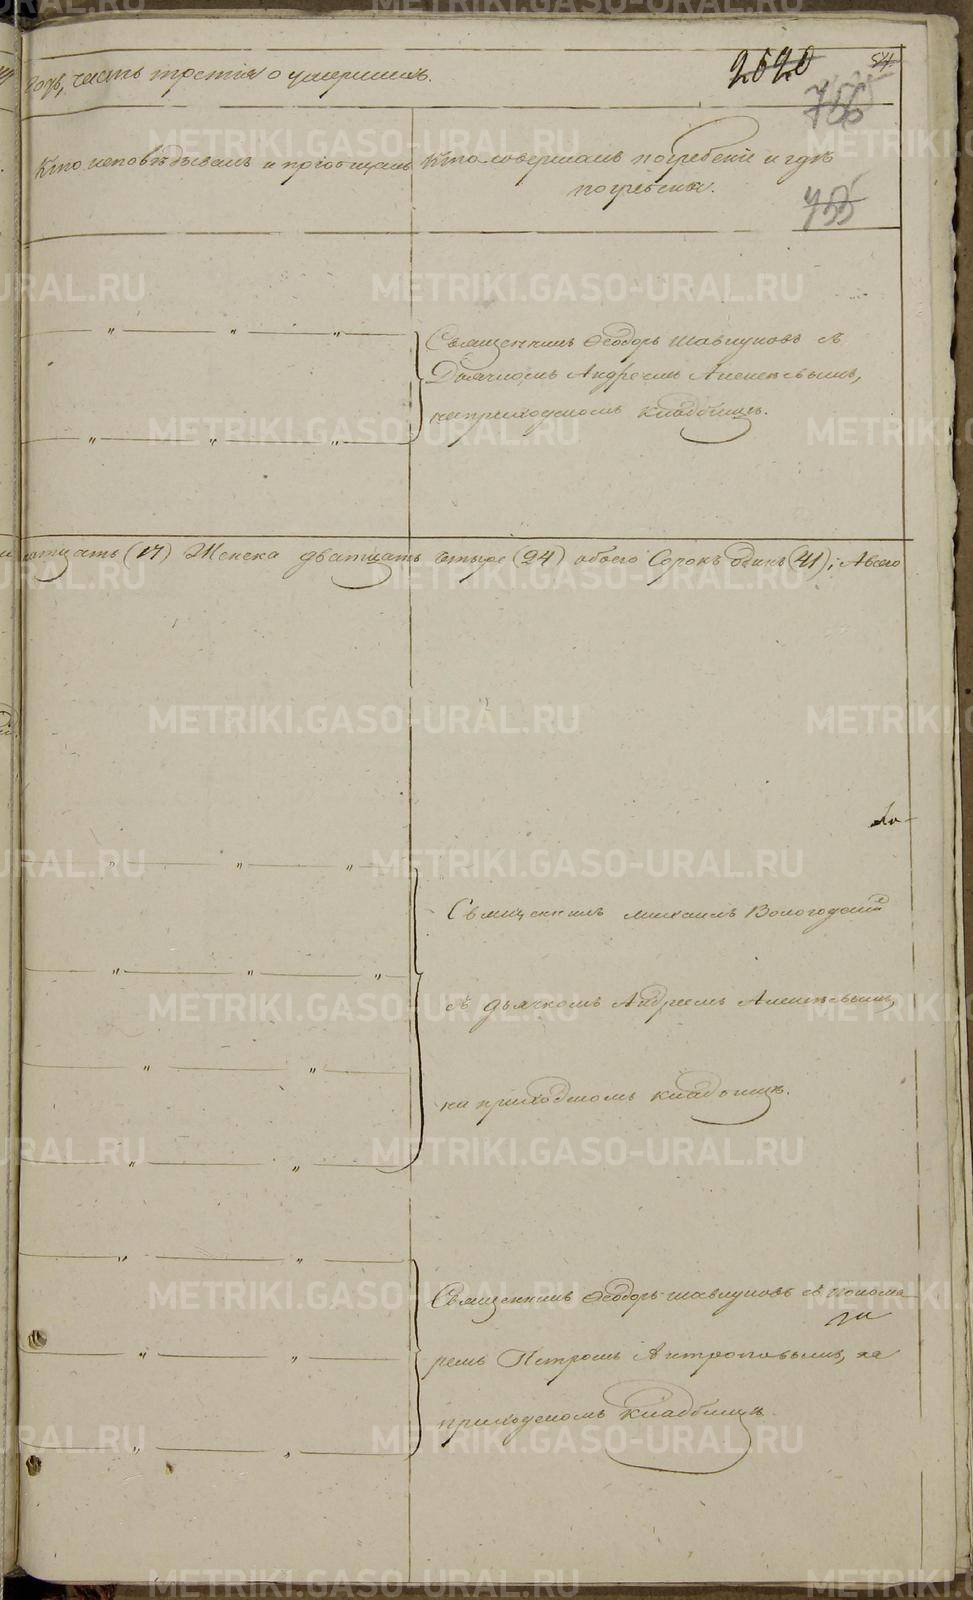 годъ, часть третiя о умершихъ.
2620
54
756
Кто исповѣдывалъ и прiобщалъ
Кто совершалъ погребенiе и гдѣ
погребены.
755
Священникъ Ѳеодоръ Шавкуновъ съ
Дьячкомъ Андреемъ Алексѣевымъ,
на приходскомъ кладбищѣ.
натцать (17) Женска дватцать четыре (24) обоего Сорокъ одинъ (41); А всего
Священникъ Михаилъ Вологодскiй
съ дьячкомъ Андреемъ Алексѣевымъ,
на приходскомъ кладбищѣ.
Священникъ Ѳеодоръ Шавкуновъ съ понома-
ремъ Петромъ Антроповымъ, на
приходскомъ кладбищѣ.
METRIKI.GASO-URAL.RU